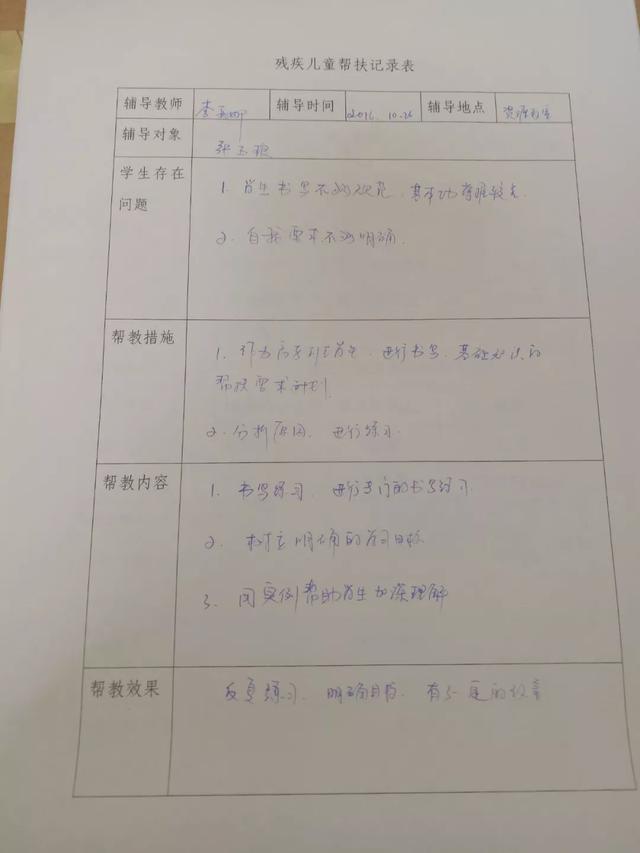 残疾儿童帮扶记录表
辅导教师 李 辅导时间 2016.10.26 辅导地点 资源教室
辅导对象 张玉
学生存在问题
1. 学生书写不够规范,基本功掌握较差.
2. 自我要求不够明确.
帮教措施
1. 学生,进行书写,基础知识的
帮扶要求计划.
2. 分析原因,进行练习.
帮教内容
1. 书写练习,进行专门的书写练习.
2. 树立明确的学习目标
3. 用实例帮助学生加深理解
帮教效果
反复练习,明确目标,有了一定的改善